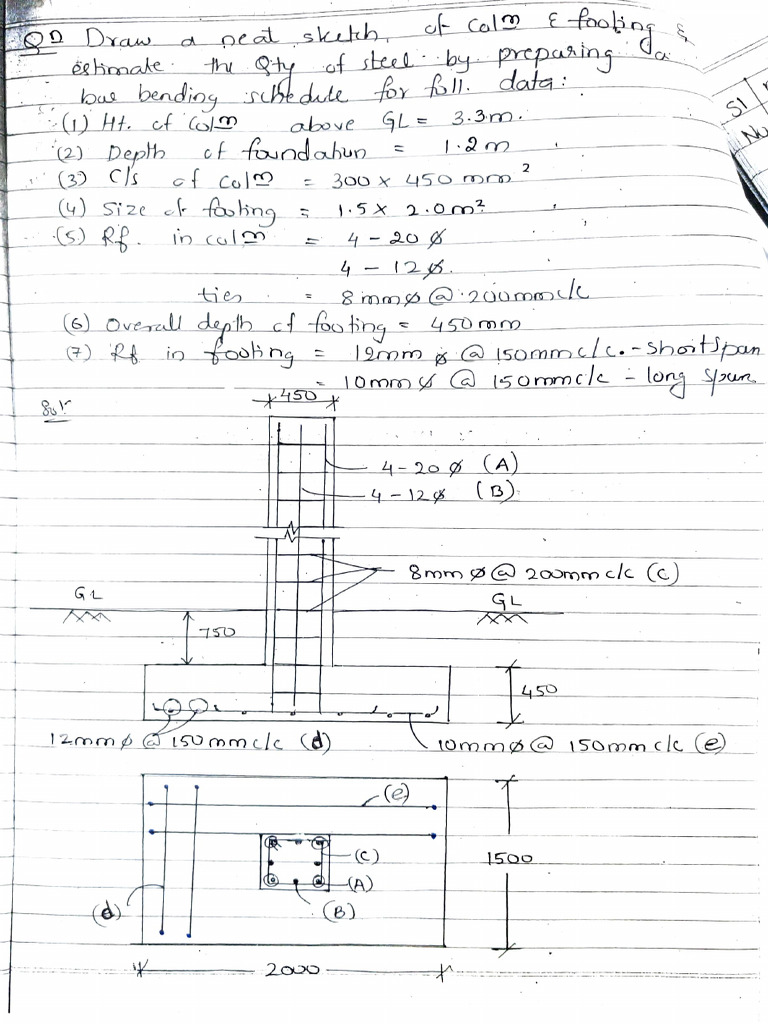 Q1) Draw a neat sketch, of colm & footing &
estimate the Qty of steel by preparing a
bar bending schedule for foll. data:
(1) Ht. of colm above GL = 3.3m.
(2) Depth of foundation = 1.2m
(3) C/s of colm = 300 x 450 mm²
(4) Size of footing = 1.5 x 2.0m²
(5) Rf. in colm = 4 - 20 ø
4 - 12 ø.
ties = 8mmø @ 200mmc/c
(6) Overall depth of footing = 450mm
(7) Rf in footing = 12mm ø @ 150mm c/c. - short span
= 10mmø @ 150mmc/c - long span
Sol
450
4-20 ø (A)
4-12 ø (B)
8mm ø @ 200mm c/c (C)
GL
GL
750
450
12mmø @ 150mmc/c (d)
10mmø @ 150mm c/c (e)
(e)
(C)
1500
(A)
(d)
(B)
2000
Sl
No